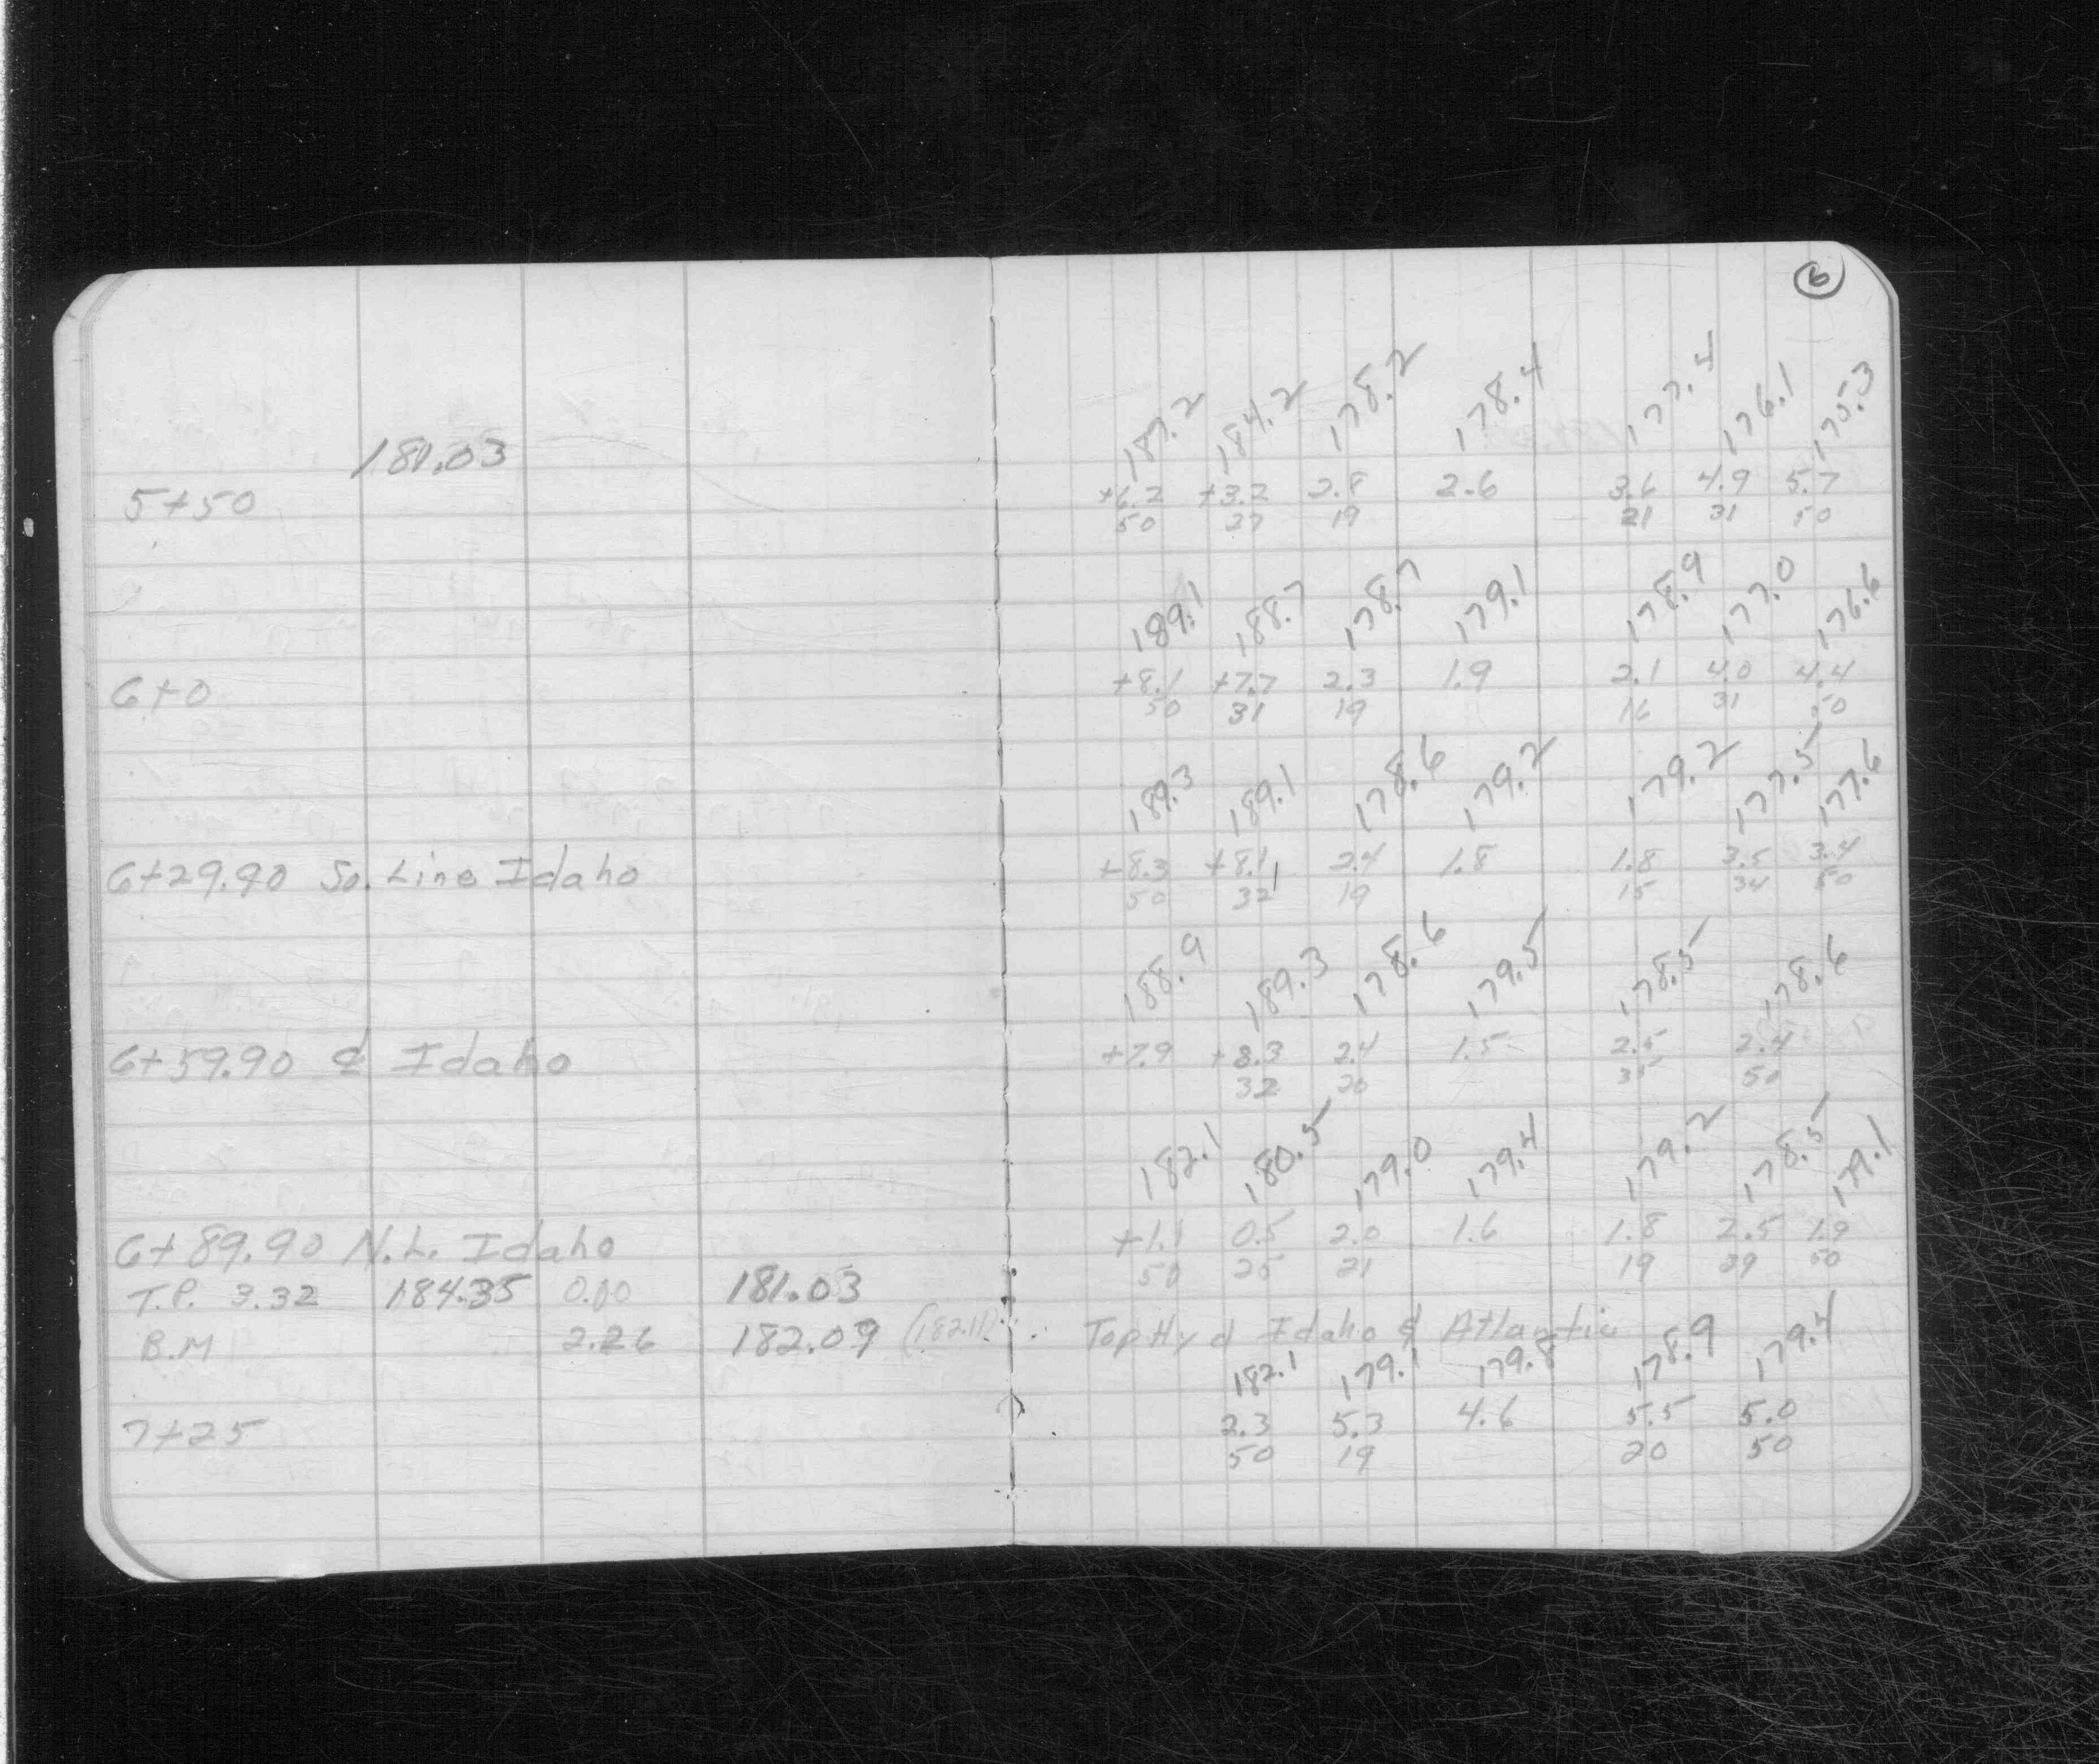 6
187.2 184.2 178.2 178.4 177.4 176.1 175.3
181.03
5+50 +6.2 +3.2 2.8 2.6 3.6 4.9 5.7
50 27 19 21 31 50
189.1 188.7 178.7 179.1 178.9 177.0 176.6
6+0 +8.1 +7.7 2.3 1.9 2.1 4.0 4.4
50 31 19 16 31 50
189.3 189.1 178.6 179.2 179.2 177.5 177.6
6+29.90 So. Line Idaho +8.3 +8.1 2.4 1.8 1.8 3.5 3.4
50 32 19 15 34 50
188.9 189.3 178.6 179.5 178.5 178.6
6+59.90 ¢ Idaho +7.9 +8.3 2.4 1.5 2.5 2.4
32 20 35 50
182.1 180.5 179.0 179.4 179.2 178.5 179.1
6+89.90 N.L. Idaho +1.1 0.5 2.0 1.6 1.8 2.5 1.9
50 25 21 19 29 50
T.P. 3.32 184.35 0.00 181.03
B.M 2.26 182.09 (182.11) Top Hyd Idaho & Atlantic
182.1 179.1 179.8 178.9 179.4
7+25 2.3 5.3 4.6 5.5 5.0
50 19 20 50